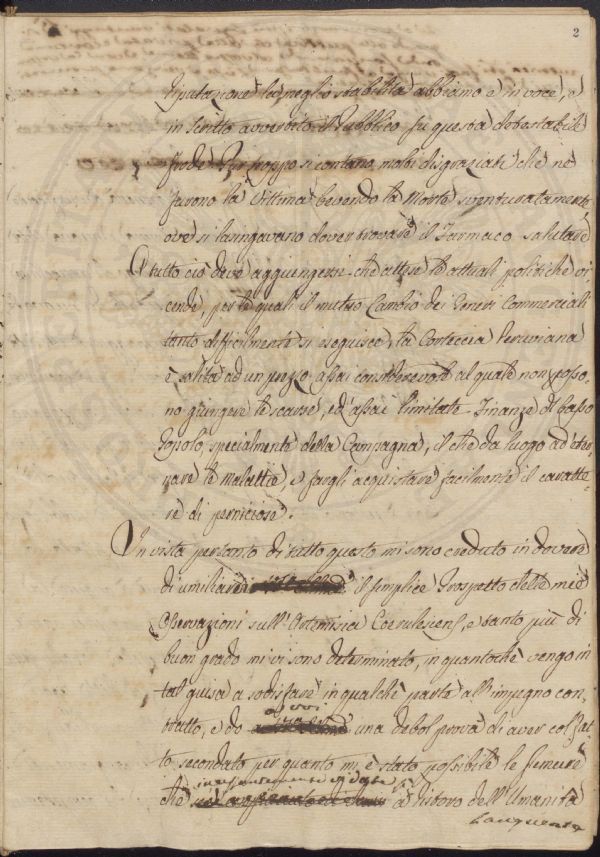 2
riputazione la meglio stabilita abbiamo e in voce, e
in scritto avvertito il Pubblico su questa detestabile
frode. Pur troppo si contano molti disgraziati che ne
furono la Vittima bevendo la Morte sventuratamente
ove si lusingavano dover trovare il Farmaco salutare
A tutto ciò deve aggiungersi che attese le attuali politiche vi-
cende, per le quali il mutuo Cambio dei Generi Commerciali
tanto difficilmente si eseguisce, la Corteccia Peruviana
è salita ad un prezzo assai considerevole al quale non posso-
no giungere le scarse, ed assai limitate Finanze del basso
Popolo, specialmente della Campagna, il che da luogo ad eter-
nare le malattie, e fargli acquistare facilmente il caratte-
re di perniciose.
In vista pertanto di tutto questo mi sono creduto in dovere
di umiliare il semplice Prospetto delle mie
Osservazioni sull'Artemisia Coerulescens, e tanto più di
buon grado mi vi sono determinato, in quantoche vengo in
tal guisa a sodisfare in qualche parte all'impegno con-
tratto, e do a voi una debol prova di aver col fat-
to secondato per quanto mi è stato possibile le premure
che incessantemente vi date a ristoro dell'Umanità
languente